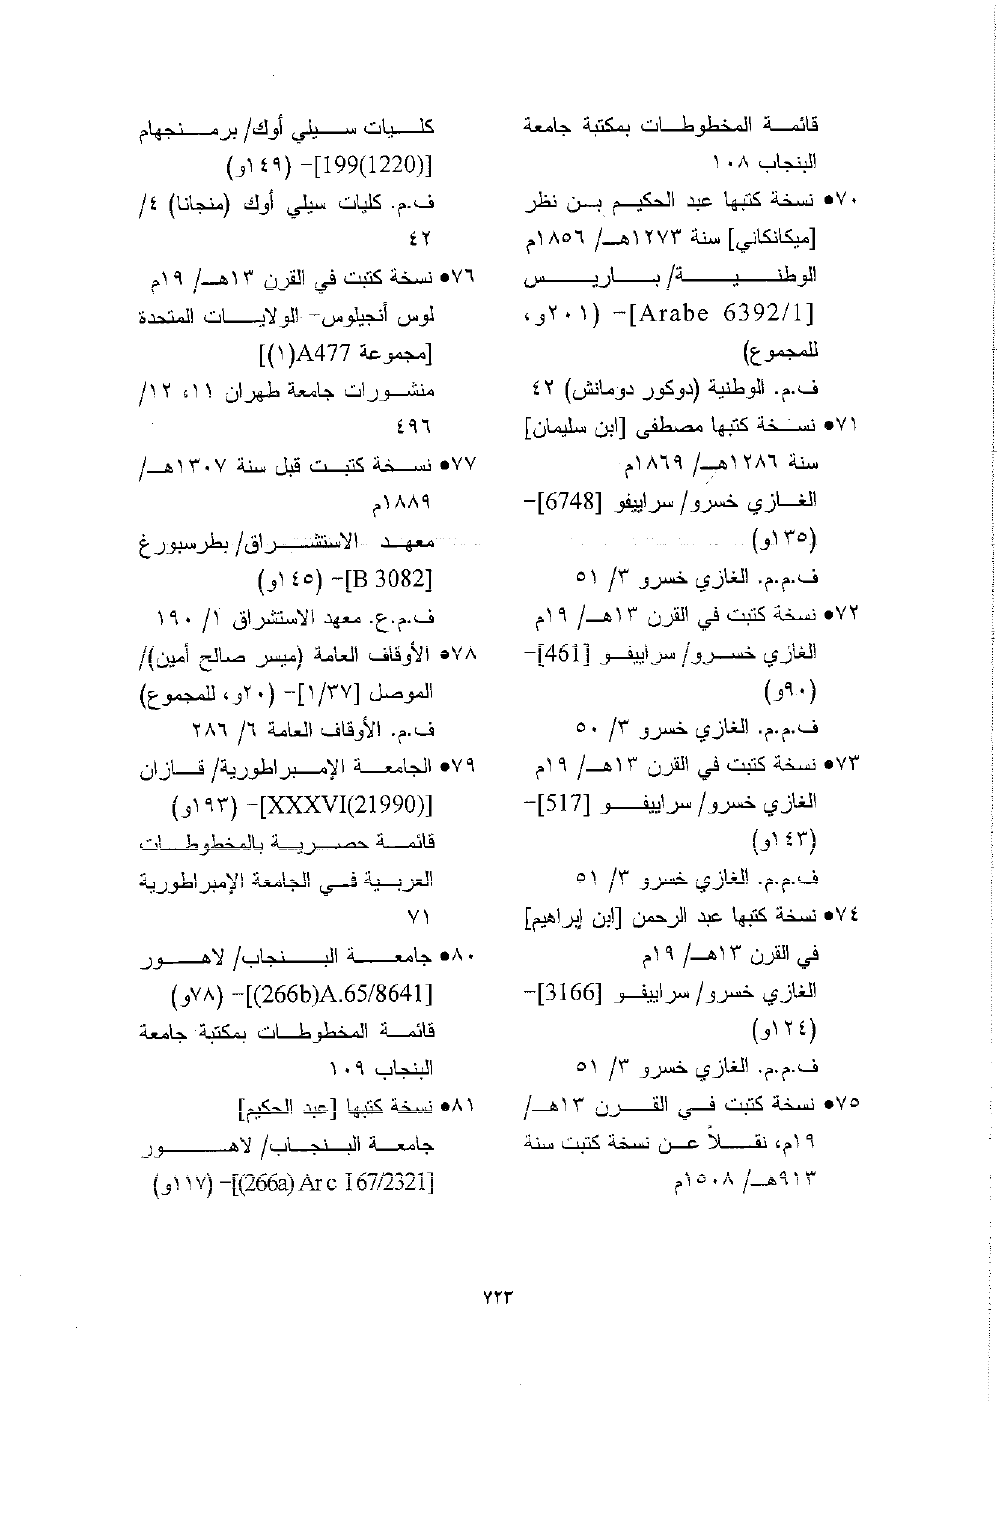 قائمة المخطوطات بمكتبة جامعة
البنجاب ١٠٨
٧٠• نسخة كتبها عبد الحكيم بن نظر
[ميكانكاني] سنة ١٢٧٣هـ/ ١٨٥٦م
الوطنية/ باريس
[Arabe 6392/1]- (٢٠١و،
للمجموع)
ف.م. الوطنية (دوكور دومانش) ٤٢
٧١• نسخة كتبها مصطفى [ابن سليمان]
سنة ١٢٨٦هـ/ ١٨٦٩م
الغازي خسرو/ سراييفو [6748]-
(١٣٥و)
ف.م.م. الغازي خسرو ٣/ ٥١
٧٢• نسخة كتبت في القرن ١٣هـ/ ١٩م
الغازي خسرو/ سراييفو [461]-
(٩٠و)
ف.م.م. الغازي خسرو ٣/ ٥٠
٧٣• نسخة كتبت في القرن ١٣هـ/ ١٩م
الغازي خسرو/ سراييفو [517]-
(١٤٣و)
ف.م.م. الغازي خسرو ٣/ ٥١
٧٤• نسخة كتبها عبد الرحمن [ابن إبراهيم]
في القرن ١٣هـ/ ١٩م
الغازي خسرو/ سراييفو [3166]-
(١٢٤و)
ف.م.م. الغازي خسرو ٣/ ٥١
٧٥• نسخة كتبت في القرن ١٣هـ/
١٩م، نقلاً عن نسخة كتبت سنة
٩١٣هـ/ ١٥٠٨م
كليات سيلي أوك/ برمنجهام
[199(1220)]- (١٤٩و)
ف.م. كليات سيلي أوك (منجانا) ٤/
٤٢
٧٦• نسخة كتبت في القرن ١٣هـ/ ١٩م
لوس أنجيلوس- الولايات المتحدة
[مجموعة A477(١)]
منشورات جامعة طهران ١١، ١٢/
٤٩٦
٧٧• نسخة كتبت قبل سنة ١٣٠٧هـ/
١٨٨٩م
معهد الاستشراق/ بطرسبورغ
[B 3082]- (١٤٥و)
ف.م.ع. معهد الاستشراق ١/ ١٩٠
٧٨• الأوقاف العامة (ميسر صالح أمين)/
الموصل [١/٣٧]- (٢٠و، للمجموع)
ف.م. الأوقاف العامة ٦/ ٢٨٦
٧٩• الجامعة الإمبراطورية/ قازان
[XXXVI(21990)]- (١٩٣و)
قائمة حصرية بالمخطوطات
العربية في الجامعة الإمبراطورية
٧١
٨٠• جامعة البنجاب/ لاهور
[(266b)A.65/8641]- (٧٨و)
قائمة المخطوطات بمكتبة جامعة
البنجاب ١٠٩
٨١• نسخة كتبها [عبد الحكيم]
جامعة البنجاب/ لاهور
[(266a) Ar c I 67/2321]- (١١٧و)
٧٢٣